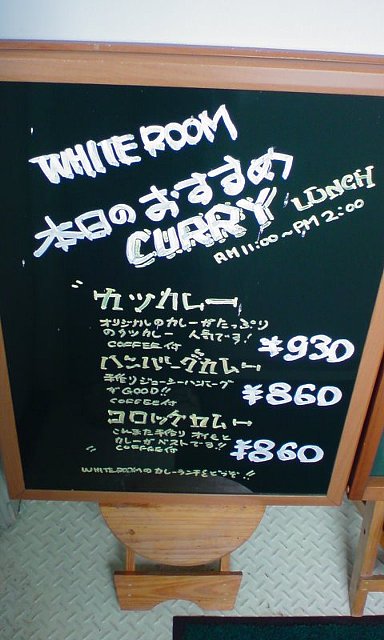 WHITE ROOM
本日のおすすめ
CURRY LUNCH
AM 11:00~PM 2:00
カツカレー
オリジナルのカレーがたっぷり
のカツカレー 人気です!
COFFEE付
¥930
ハンバーグカレー
手作りジューシーハンバーグ
がGOOD!!
COFFEE付
¥860
コロッケカレー
これまた手作り
カレーがベストです!!
COFFEE付
¥860
WHITE ROOMのカレーランチをどうぞ!!